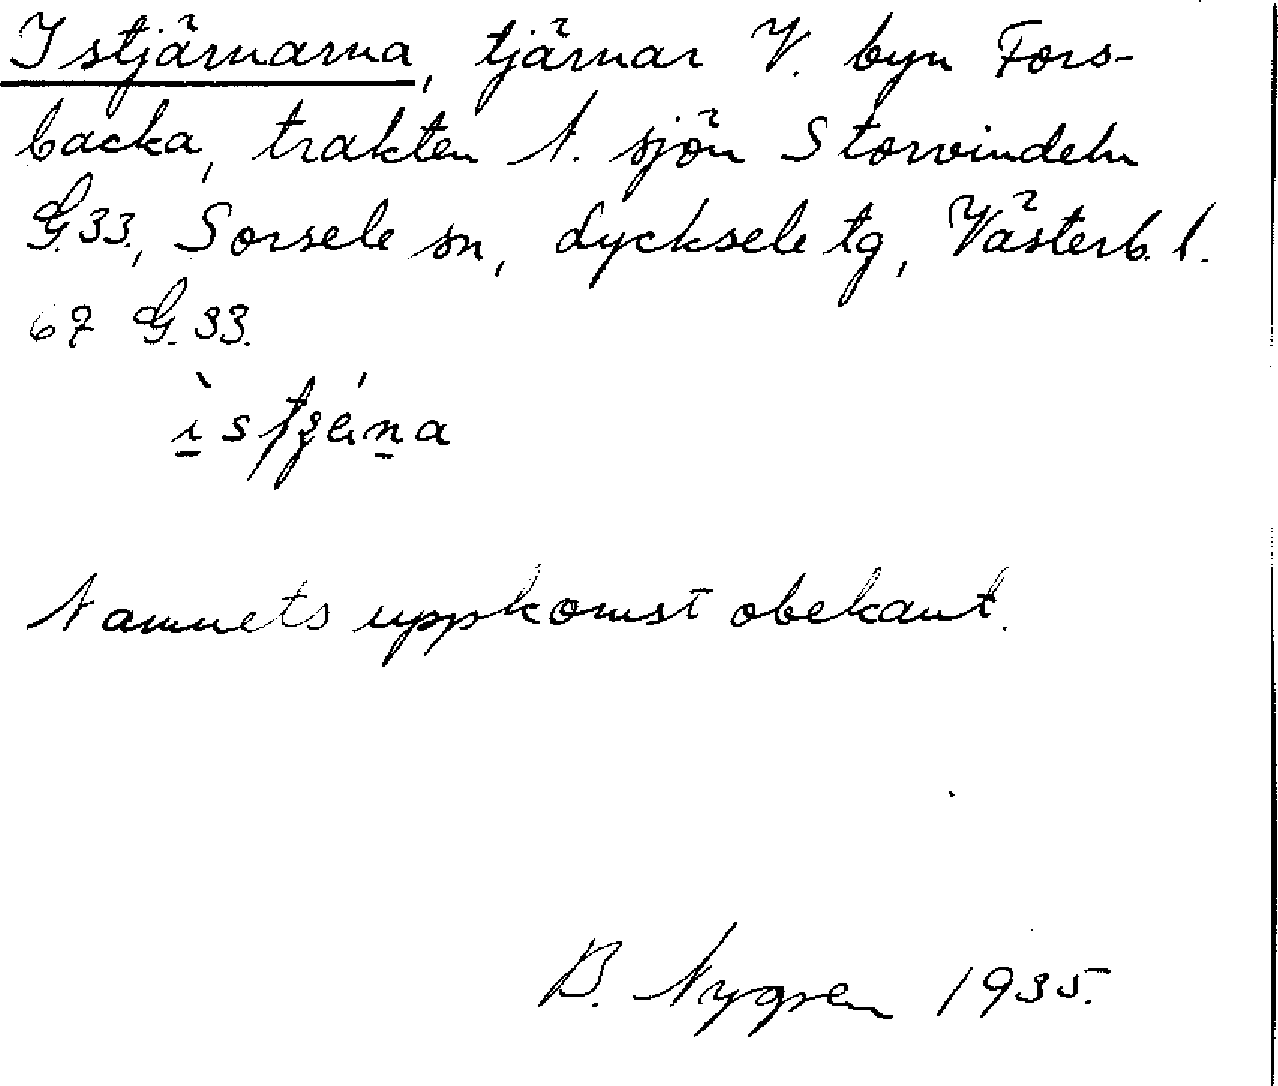 Istjärnarna, tjärnar V. byn Fors-
backa, trakten N. sjön Storvindeln
G.33., Sorsele sn, Lycksele tg, Västerb. l.
67 G.33.
Namnets uppkomst obekant.
B. Nygren 1935.